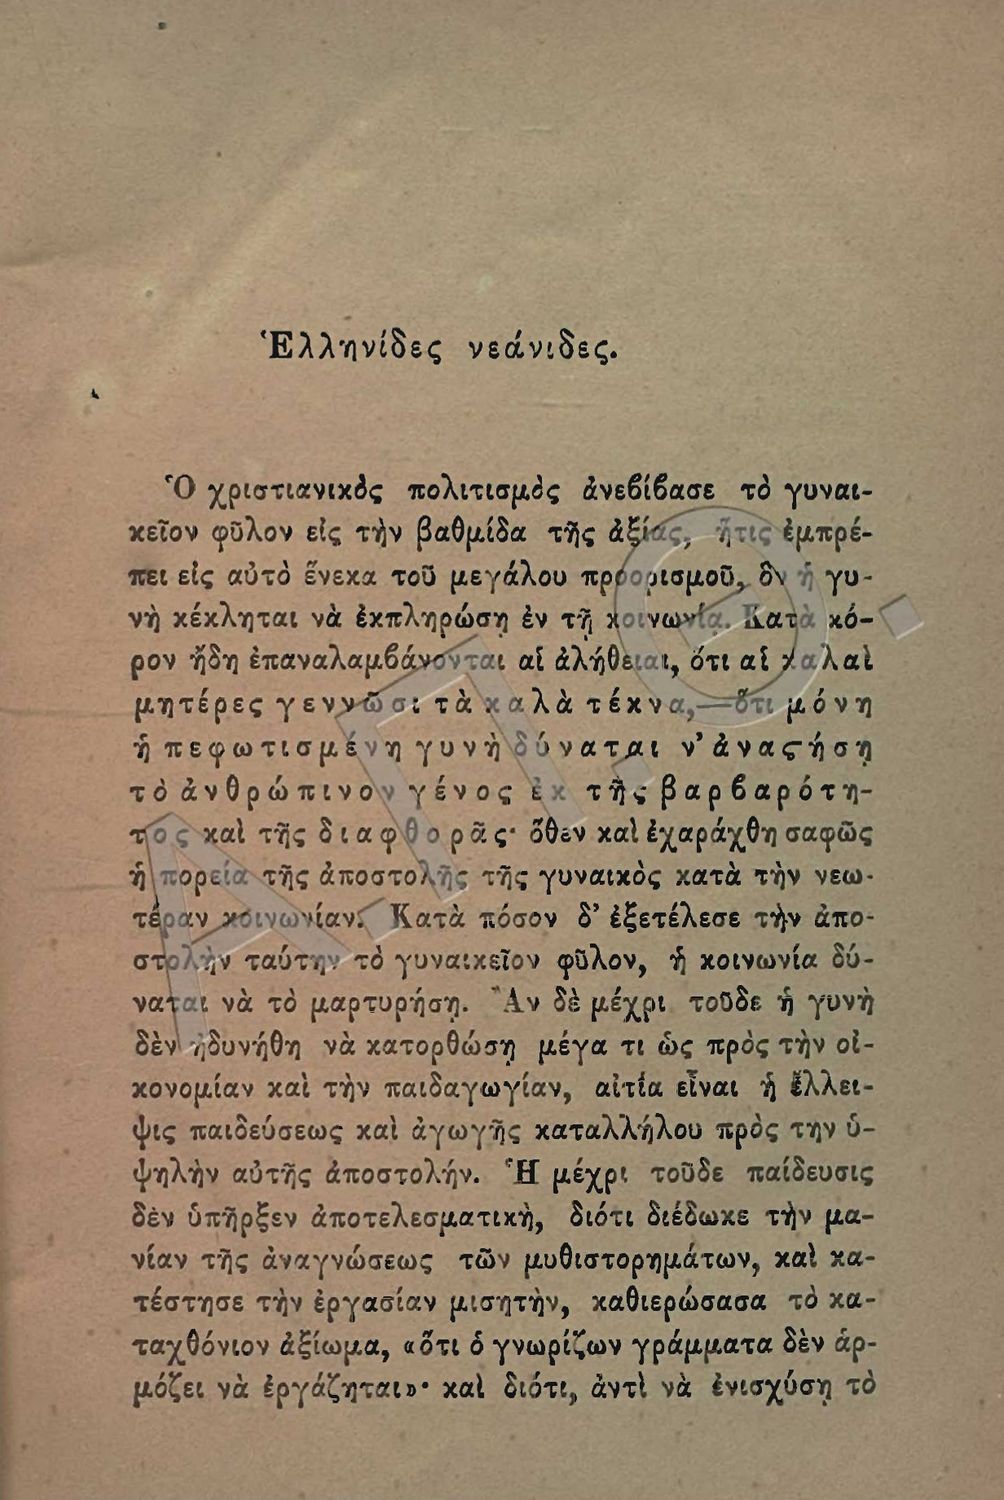 Ἑλληνίδες νεάνιδες.
Ὁ χριστιανικὸς πολιτισμὸς ἀνεβίβασε τὸ γυναι-
κεῖον φῦλον εἰς τὴν βαθμίδα τῆς ἀξίας, ἥτις ἐμπρέ-
πει εἰς αὐτὸ ἕνεκα τοῦ μεγάλου προορισμοῦ, ὃν ἡ γυ-
νὴ κέκληται νὰ ἐκπληρώσῃ ἐν τῇ κοινωνίᾳ. Κατὰ κό-
ρον ἤδη ἐπαναλαμβάνονται αἱ ἀλήθειαι, ὅτι αἱ καλαὶ
μητέρες γεννῶσι τὰ καλὰ τέκνα,—ὅτι μόνη
ἡ πεφωτισμένη γυνὴ δύναται ν’ ἀναςήσῃ
τὸ ἀνθρώπινον γένος ἐκ τῆς βαρβαρότη-
τος καὶ τῆς διαφθορᾶς· ὅθεν καὶ ἐχαράχθη σαφῶς
ἡ πορεία τῆς ἀποστολῆς τῆς γυναικὸς κατὰ τὴν νεω-
τέραν κοινωνίαν. Κατὰ πόσον δ’ ἐξετέλεσε τὴν ἀπο-
στολὴν ταύτην τὸ γυναικεῖον φῦλον, ἡ κοινωνία δύ-
ναται νὰ τὸ μαρτυρήσῃ. Ἂν δὲ μέχρι τοῦδε ἡ γυνὴ
δὲν ἠδυνήθη νὰ κατορθώσῃ μέγα τι ὡς πρὸς τὴν οἰ-
κονομίαν καὶ τὴν παιδαγωγίαν, αἰτία εἶναι ἡ ἔλλει-
ψις παιδεύσεως καὶ ἀγωγῆς καταλλήλου πρὸς την ὑ-
ψηλὴν αὐτῆς ἀποστολήν. Ἡ μέχρι τοῦδε παίδευσις
δὲν ὑπῆρξεν ἀποτελεσματικὴ, διότι διέδωκε τὴν μα-
νίαν τῆς ἀναγνώσεως τῶν μυθιστορημάτων, καὶ κα-
τέστησε τὴν ἐργασίαν μισητὴν, καθιερώσασα τὸ κα-
ταχθόνιον ἀξίωμα, «ὅτι ὁ γνωρίζων γράμματα δὲν ἁρ-
μόζει νὰ ἐργάζηται»· καὶ διότι, ἀντὶ νὰ ἐνισχύσῃ τὸ